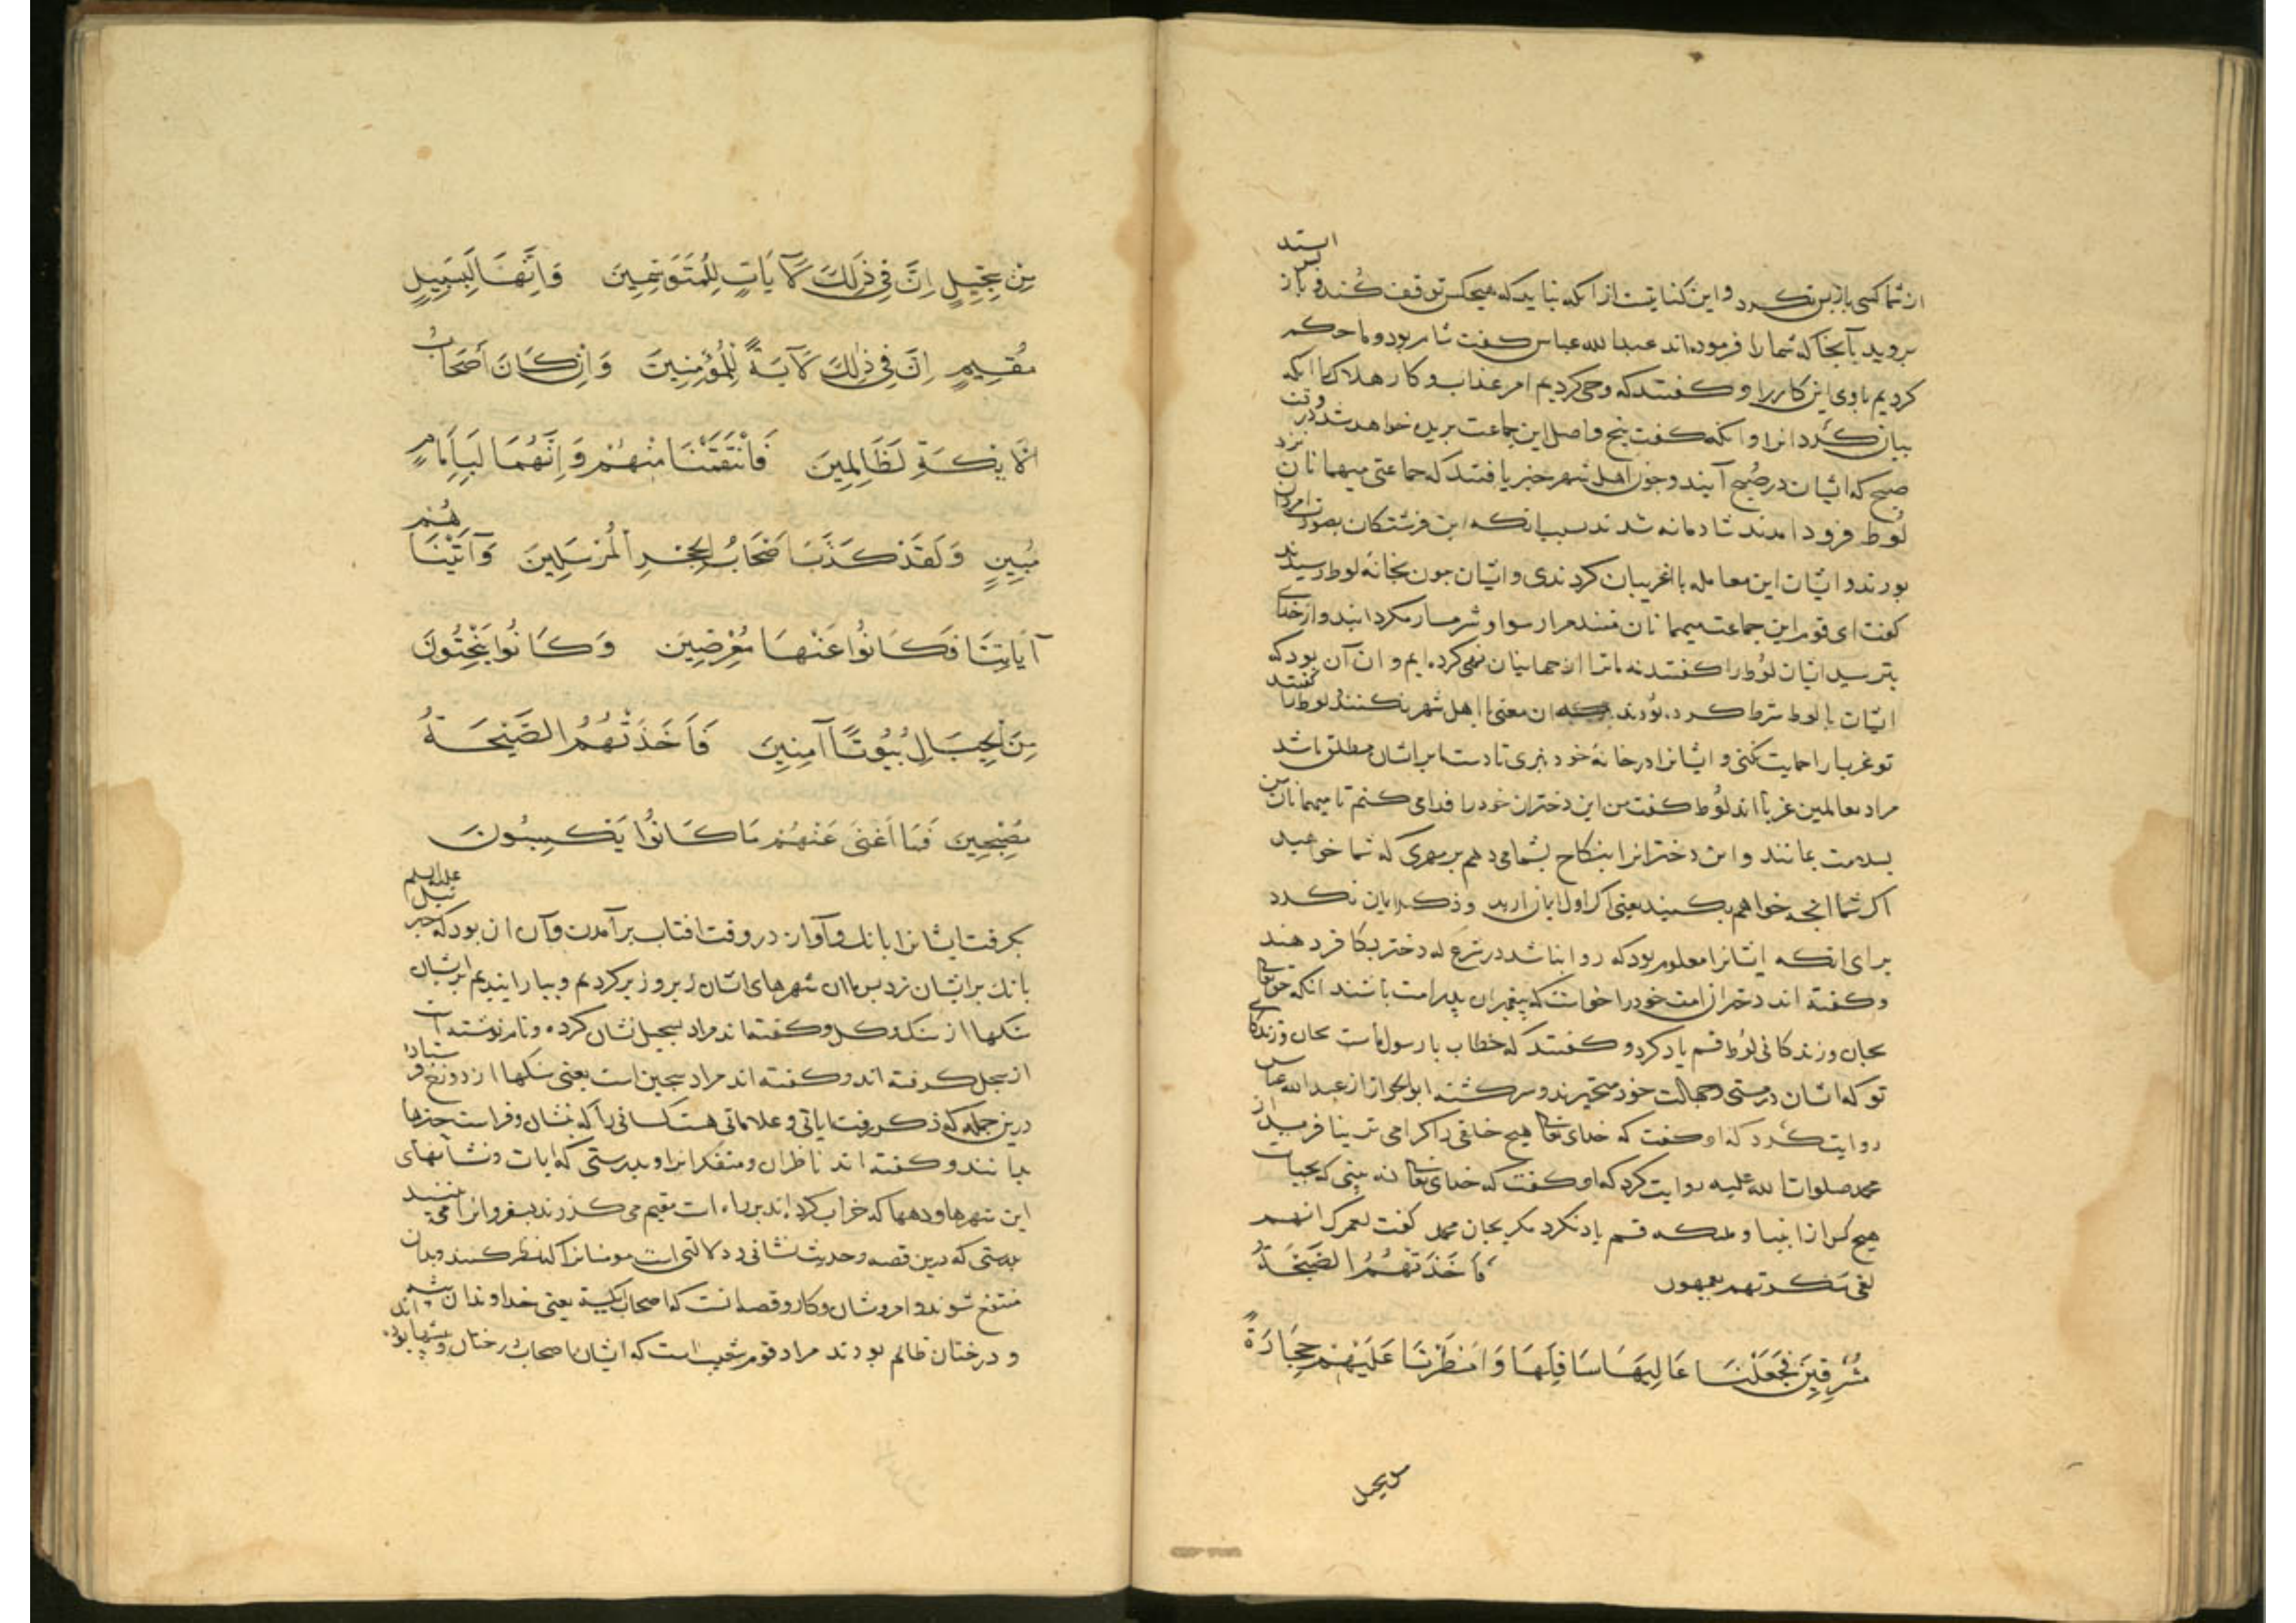 از شما کسی بازپس نکرد و این کنایتست از انکه نباید که هیچکس توقف کند و باز پس استد
بروید بآنجا که شما را فرموده اند عبدالله عباس کفت شام بود و ما حکم
کردیم باوی این کار را و کفتند که وحی کردیم امر عذاب و کار هلاک تا انکه
بیان کرد انرا و انکه کفت بیخ و اصل این جماعت بریده خواهد شد در وقت
صبح که ایشان در صبح آیند و چون اهل شهر خبر یافتند که جماعتی میهمانان نزد
لوط فرود امدند شادمانه شدند بسبب انکه این فرشتکان بصورت امردان
بودند و ایشان این معامله با غریبان کردندی و ایشان چون بخانه لوط رسیدند
کفت ای قوم این جماعت میهمانان منند مرا رسوا و شرمسار مکردانید و از خدای
بترسید ایشان لوط را کفتند نه ما ترا از جهانیان نهی کرده ایم و ان آن بود که
ایشان با لوط شرط کرده بودند این معنی با اهل شهر نکنند لوط را کفتند
تو غربا را حمایت نکنی و ایشانرا در خانه خود نبری تا دست ما بر ایشان مطلق باشد
مراد بعالمین غربا اند لوط کفت من این دختران خود را فدا می کنم تا میهمانان من
بسلامت بمانند و این دخترانرا بنکاح بشما می دهم بر مهری که شما خواهید
اکر شما انچه خواهم بکنید یعنی اکر اول ایمان ارید و ذکر ایمان نکرد
برای انکه ایشانرا معلوم بود که روا نباشد در شرع که دختر بکافر دهند
و کفته اند دختران امت خود را خواست که پیغمبران پدر امت باشند انکه حق تعالی
بجان و زندکانی لوط قسم یاد کرد و کفتند که خطاب با رسول ماست بجان و زندکانی
تو که ایشان در مستی و جهالت خود متحیرند و سرکشته ابو الجوزا از عبدالله عباس
روایت کرد که او کفت که خدای تعالی هیچ خلقی را کرامی تر نیافرید از
محمد صلوات الله علیه روایت کرد که او کفت که خدای تعالی نه بینی که بحیات
هیچ کس از انبیا و ملائکه قسم یاد نکرد مکر بجان محمد کفت لعمرک انهم
لفی سکرتهم یعمهون فَاَخَذَتْهُمُ الصَّیْحَةُ
مُشْرِقِینَ فَجَعَلْنَا عَالِیَهَا سَافِلَهَا وَاَمْطَرْنَا عَلَیْهِمْ حِجَارَةً
من سجیل
مِنْ سِجِّیلٍ اِنَّ فِی ذٰلِكَ لَآیَاتٍ لِلْمُتَوَسِّمِینَ وَاِنَّهَا لَبِسَبِیلٍ
مُقِیمٍ اِنَّ فِی ذٰلِكَ لَآیَةً لِلْمُؤْمِنِینَ وَاِنْ كَانَ أَصْحَابُ
الْاَیْكَةِ لَظَالِمِینَ فَانْتَقَمْنَا مِنْهُمْ وَاِنَّهُمَا لَبِاِمَامٍ
مُبِینٍ وَلَقَدْ كَذَّبَ اَصْحَابُ الْحِجْرِ الْمُرْسَلِینَ وَآتَیْنَاهُمْ
آیَاتِنَا فَكَانُوا عَنْهَا مُعْرِضِینَ وَكَانُوا یَنْحِتُونَ
مِنَ الْجِبَالِ بُیُوتًا آمِنِینَ فَاَخَذَتْهُمُ الصَّیْحَةُ
مُصْبِحِینَ فَمَا اَغْنَی عَنْهُمْ مَا كَانُوا یَكْسِبُونَ
بکرفت ایشانرا بانک و آواز در وقت افتاب برآمدن و آن ان بود که جبرئیل علیه السلم
بانک بر ایشان زد پس ما ان شهرهای ایشان زیر و زبر کردیم و ببارانیدیم بر ایشان
سنکها از سنک و کل و کفته اند مراد بسجیل نشان کرده و نام نوشته است
از سجل کرفته اند و کفته اند مراد سجین است یعنی سنکها از دوزخ فرستاد
درین جمله که ذکر رفت ایاتی و علاماتی هست کسانی را که بنشان و فراست چیزها
بدانند و کفته اند ناظران و متفکرانرا و بدرستی که ایات و نشانهای
این شهرها و دهها که خراب کرده اند بر راه است مقیم می کذرند بسفر و انرا می بینند
بدرستی که درین قصه و حدیث نشانی و دلالتی است مومنانرا که نظر کنند و بدان
منتفع شوند و امر و شان و کار و قصه انست که اصحاب ایکه یعنی خداوندان بیشه
و درختان ظالم بودند مراد قوم شعیب است که ایشان اصحاب درختان و بیشها بوده اند